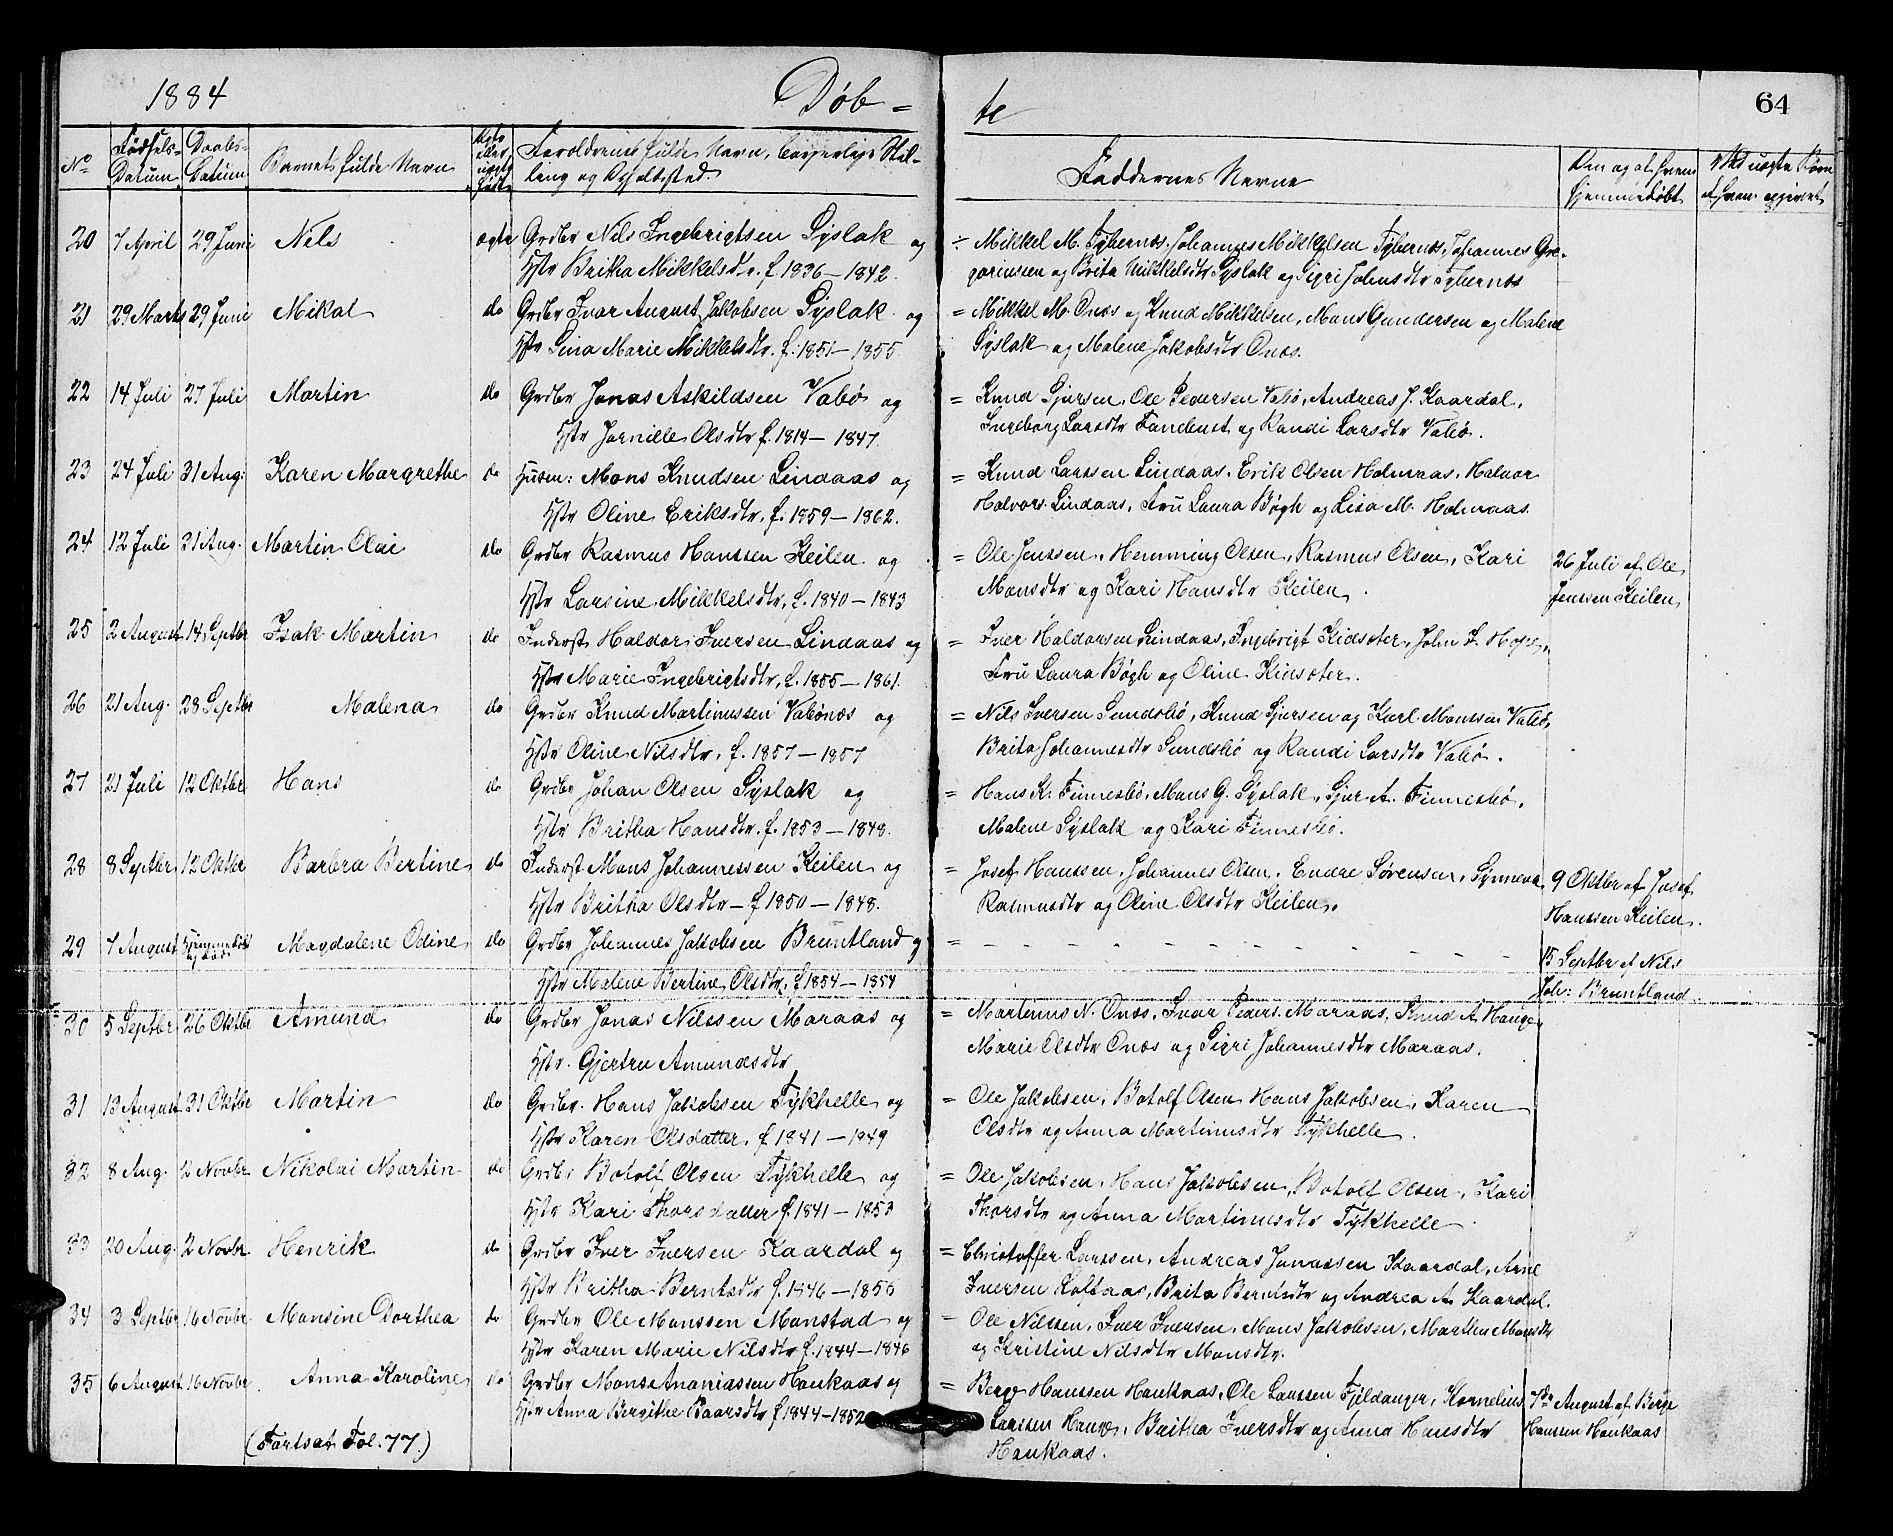 1884 Døb= te 64
No Fødsels- Datum Daabs- Datum Barnets fulde Navn Ægte eller uægte født Forældrenes fulde Navn, borgerlige Stil-
ling og Opholdssted.
Faddernes Navne
Om og af hvem hjemmedøbt
Ved uægte Børn af hvem opgivet
20 7 April 29 Juni Nils ægte Grdbr Nils Ingebrigtsen Syslak og
Hstr Britha Mikkelsdtr. f. 1836 – 1842.
÷ Mikkel M. Fyhernæs, Johannes Mikkelsen Fyhernæs, Johannes Gre-
goriussen og Brita Mikkelsdtr Syslak og Sigri Johnsdtr Fyhernæs
21 29 Marts 29 Juni Mikal do Grdbr Ivar August Jakobsen Syslak og
Hstr Sina Marie Mikkelsdtr. f. 1851 – 1855
= Mikkel M. Onæs og Knud Mikkelsen, Mons Gundersen og Malene
Syslak og Malene Jakobsdtr Onæs.
22 14 Juli 27 Juli Martin do Grdbr Jonas Askildsen Vabø og
Hstr Jornille Olsdtr f. 1814 – 1847.
= Knud Sjursen, Ole Pedersen Vabø, Andreas J. Kaardal,
Ingeborg Larsdtr Tandeust og Randi Larsdtr Vabø.
23 24 Juli 31 Aug: Karen Margrethe do Husm: Mons Knudsen Lindaas og
Hstr Oline Eriksdtr, f. 1859 – 1862.
= Knud Larssen Lindaas, Erik Olsen Holmaas, Halvor
Halvors. Lindaas, Fru Laura Bøgh og Lisa M. Holmaas.
24 12 Juli 31 Aug. Martin Olai do Grdbr Rasmus Hanssen Keilen og
Hstr Larsine Mikkelsdtr, f. 1840 – 1843
= Ole Jenssen, Hemming Olsen, Rasmus Olsen, Kari
Monsdtr og Kari Hansdtr Keilen.
26 Juli af Ole
Jenssen Keilen
25 2 August 14 Septbr Isak Martin do Inderst Haldor Iversen Lindaas og
Hstr Marie Ingebrigtsdtr, f. 1855 – 1861
= Iver Haldorsen Lindaas, Ingebrigt Kidsæter, John L. Hope,
Fru Laura Bøgh og Oline Kidsæter.
26 21 Aug. 28 Septbr Malena do Grdbr Knud Martinussen Vabønæs og
Hstr Oline Nilsdtr, f. 1857 – 1857
= Nils Iversen Sundsbø, Knud Sjursen og Karl Monssen Vabø,
Brita Johannesdtr Sundsbø og Randi Larsdtr Vabø.
27 21 Juli 12 Oktbr Hans do Grdbr Johan Olsen Syslak og
Hstr Britha Hansdtr. f. 1853 – 1848.
= Hans K. Finnesbø, Mons G. Syslak, Sjur A. Finnesbø,
Malene Syslak og Kari Finnesbø.
28 8 Septbr 12 Oktbr Barbra Bertine do Inderst Mons Johannessen Keilen og
Hstr Britha Olsdtr – f 1850 – 1848.
= Josef Hanssen, Johannes Olsen, Endre Sørensen, Synneva
Rasmusdtr og Oline Olsdtr Keilen.
9 Oktbr af Josef
Hanssen Keilen.
29 7 August Hjemmedøbt og død Magdalene Odine do Grdbr Johannes Jakobsen Bruntland og
Hstr Malene Bertine Olsdtr, f 1854 – 1854
= – – – – – – – – – – – –
15 Septbr af Nils
Joh: Bruntland.
30 5 Septbr 26 Oktbr Amund do Grdbr Jonas Nilssen Maraas og
Hstr. Gjertru Amundsdtr
= Martinus N. Onæs, Ivar Peders. Maraas, Knud A. Hauge,
Marie Olsdtr Onæs og Sigri Johannesdtr Maraas.
31 13 August 31 Oktbr Martin do Grdbr. Hans Jakobsen Fykhelle og
Hstr Karen Olsdatter, f 1841 – 1849
= Ole Jakobsen, Botolf Olsen Hans Jakobsen, Karen
Olsdtr og Anna Martinusdtr Fykhelle.
32 8 Aug. 2 Novbr Nikolai Martin do Grdbr Botolf Olsen Fykhelle og
Hstr Kari Thorsdatter f. 1841 – 1853
= Ole Jakobsen, Hans Jakobsen, Botolf Olsen, Kari
Thorsdtr og Anna Martinusdtr Fykhelle.
33 20 Aug. 2 Novbr Henrik do Grdbr Iver Iversen Kaardal og
Hstr Britha Berntsdtr f. 1846 – 1855
= Christoffer Larssen, Andreas Jonassen Kaardal, Arne
Iversen Loftaas, Brita Berntsdtr og Andrea A. Kaardal.
34 3 Septbr 16 Novbr. Monsine Dorthea do Grdbr Ole Monssen Monstad og
Hstr Karen Marie Nilsdtr f. 1844 – 1846
– Ole Nilssen, Iver Iversen, Mons Jakobsen, Marthe Monsdtr
og Kristine Nilsdtr Monsdtr.
35 6 August 16 Novbr. Anna Karoline do Grdbr Mons Ananiassen Haukaas og
Hstr Anna Bergithe Baarsdtr f 1844 – 1852
= Berge Hanssen Haukaas, Ole Larssen Fjeldanger, Kornelius
Larssen Hauge, Britha Iversdtr og Anna Hansdtr
Haukaas.
7de August af Berge
Hanssen Haukaas
(Fortsat Fol. 77.)